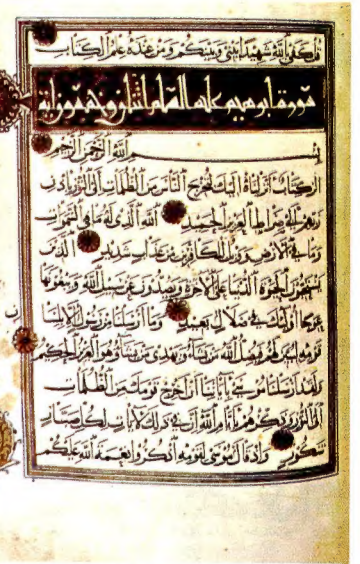 قل كفى بالله شهيدا بيني وبينكم ومن عنده علم الكتاب
سورة ابرهيم عليه السلام اثنان وخمسون اية
بسم الله الرحمن الرحيم
الر كتاب أنزلناه إليك لتخرج الناس من الظلمات إلى النور بإذن
ربهم إلى صراط العزيز الحميد الله الذي له ما في السموات
وما في الأرض وويل للكافرين من عذاب شديد الذين
يستحبون الحيوة الدنيا على الآخرة ويصدون عن سبيل الله ويبغونها
عوجا أولئك في ضلال بعيد وما أرسلنا من رسول إلا بلسان
قومه ليبين لهم فيضل الله من يشاء ويهدي من يشاء وهو العزيز الحكيم
ولقد أرسلنا موسى بآياتنا أن أخرج قومك من الظلمات
إلى النور وذكرهم بأيام الله إن في ذلك لآيات لكل صبار
شكور وإذ قال موسى لقومه اذكروا نعمة الله عليكم